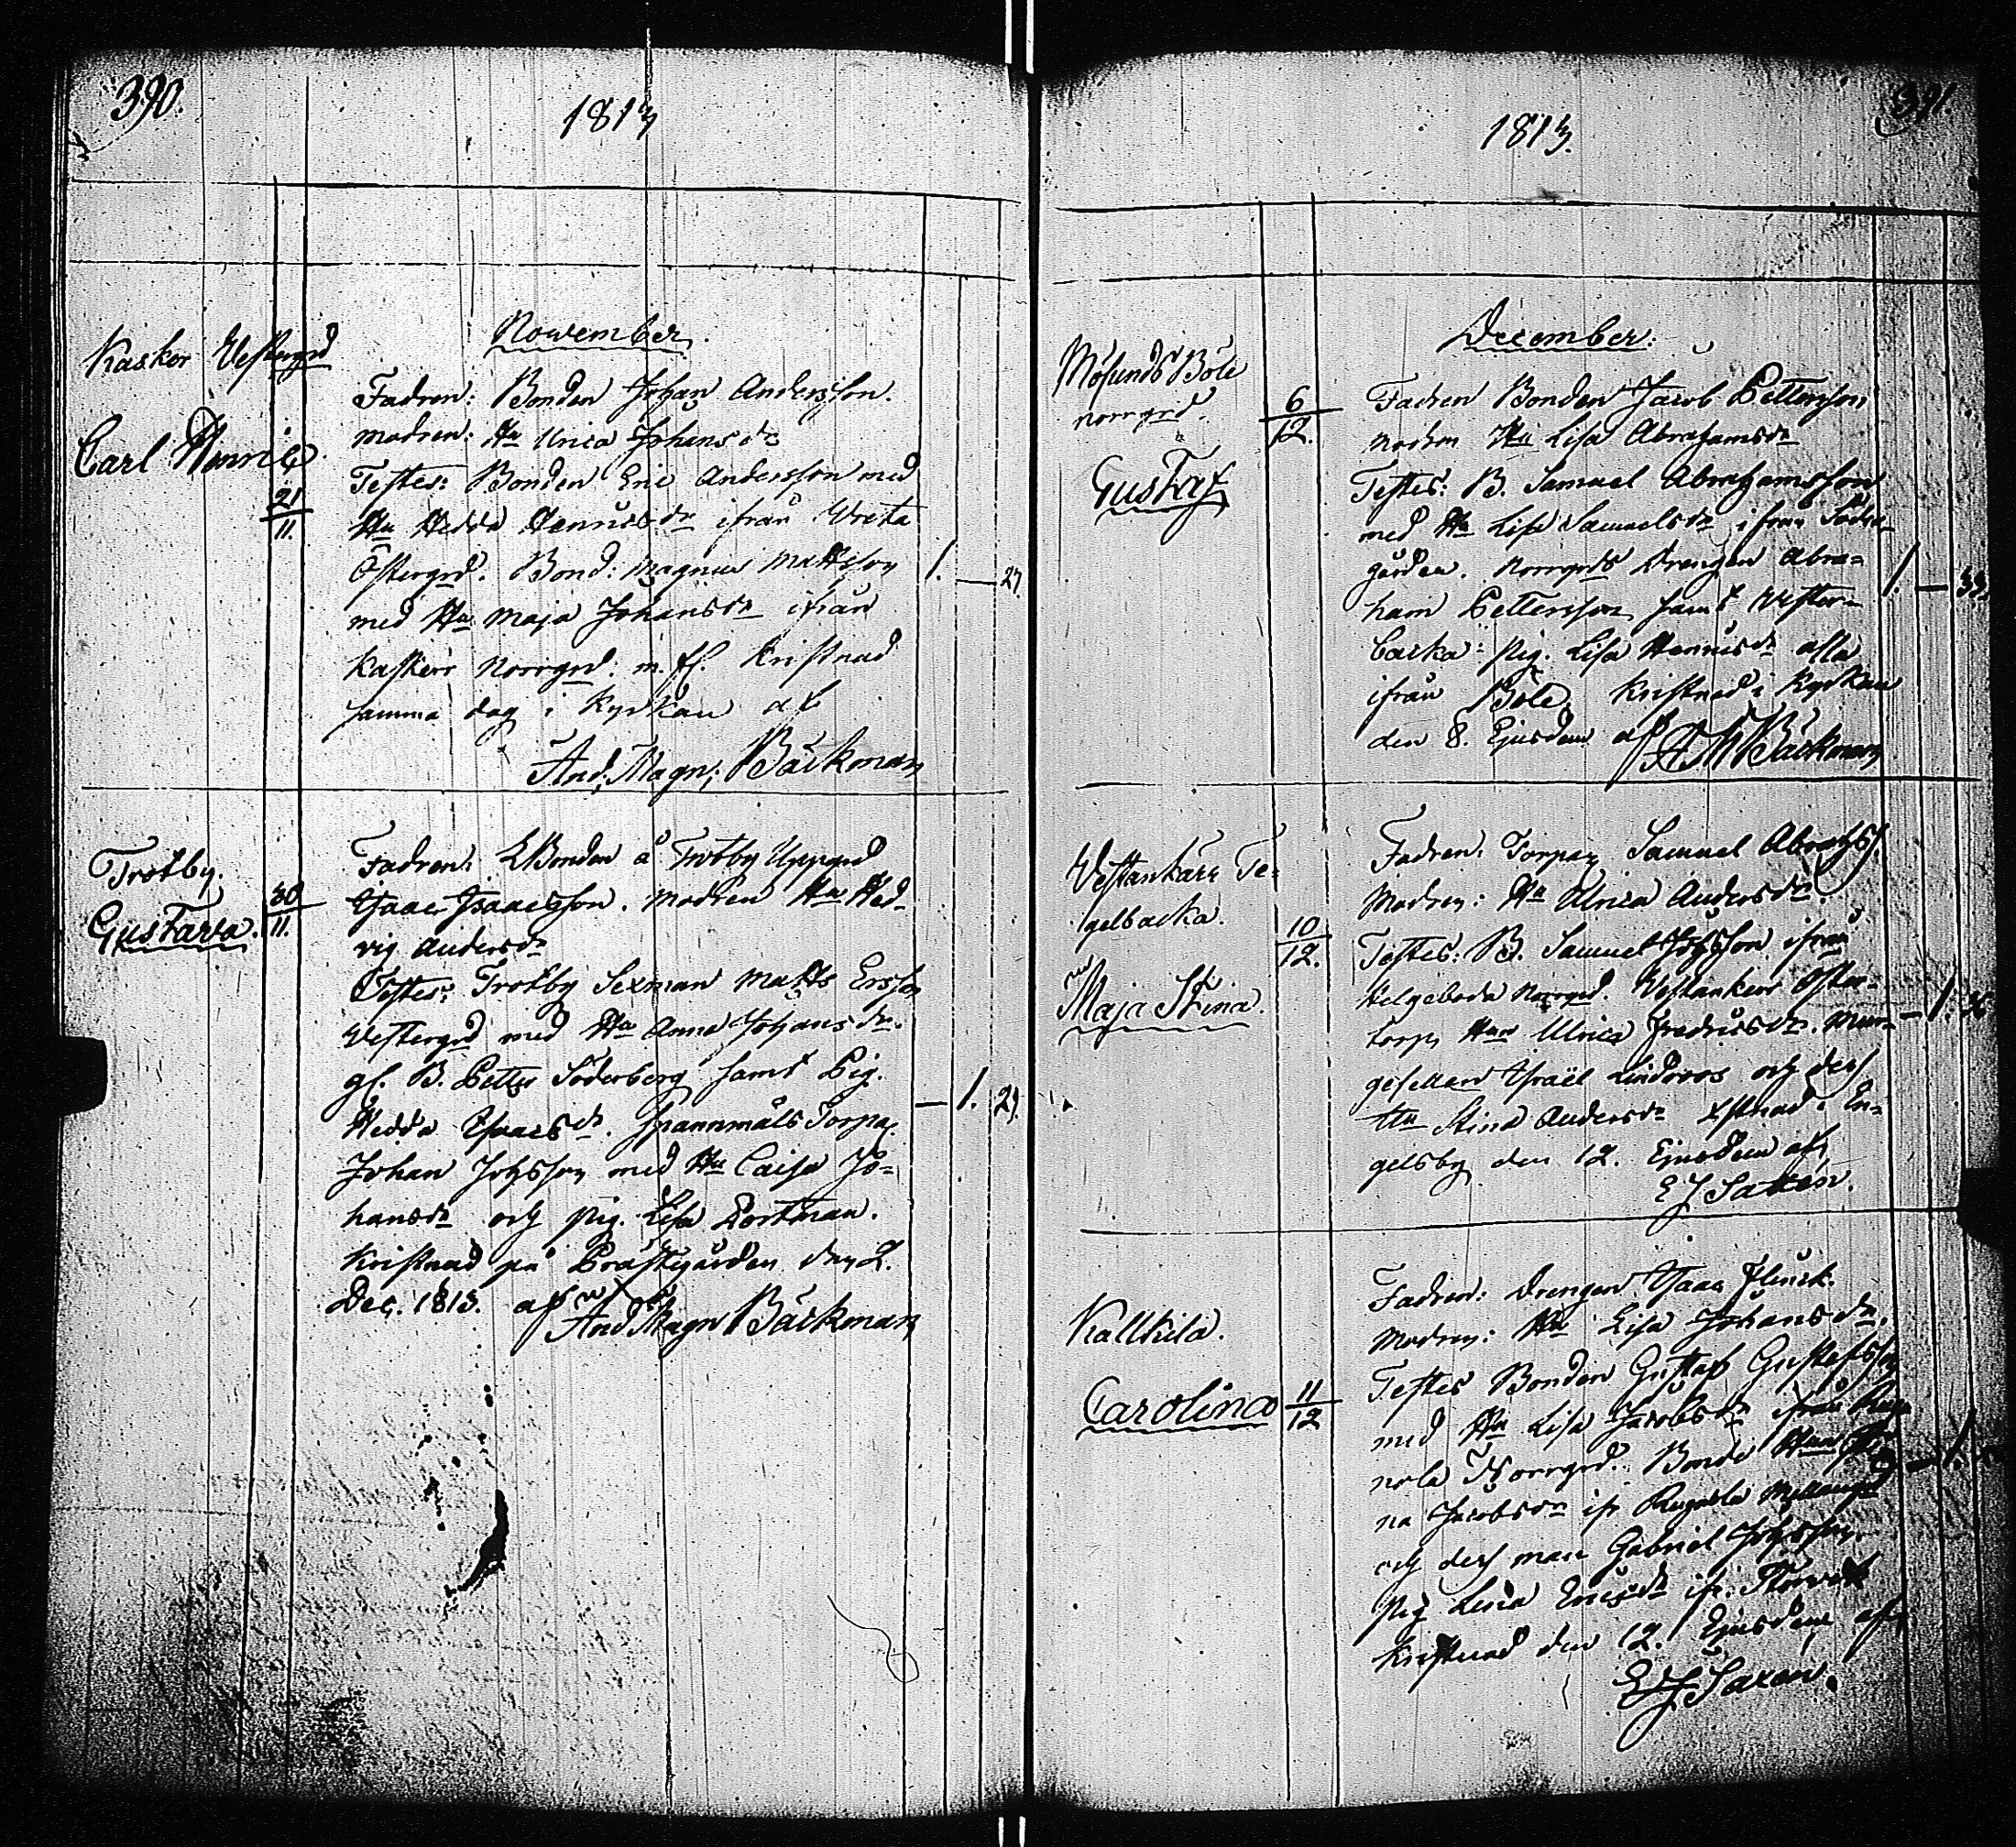 390.
1813
Nowember.
Kasker Vestergrd
Carl Henric
21
11.
Fadren: Bonden Johan Andersson.
modren: Hu Ulrica Johansdr
Testes: Bonden Eric Andersson med
Hu Hedda Henricsdr ifrån Wreta
Östergrd. Bond: Magnus Mattsson
med Hu Maja Johansdr ifrån
Kasker Norrgrd: m. fl. Kristnad
samma dag i Kyrkan af
And: Magn: Bäckman
1. — 27.
Trotby.
Gustava.
30
11.
Fadren: Bonden å Trotby Uppgrd
Isaac Isaacsson. modren Hu Hed-
vig Andersdr
Testes: Trotby Sexman Matts Ersson
Vestergrd med Hu Anna Johansdr.
gl. B. Petter Söderberg samt Pig.
Hedda Isaacsdr. Spannmåls Torpar.
Johan Johsson med Hu Caisa Jo-
hansdr och pig. Lisa Portman.
Kristnad på Prästgården den 2.
Dec. 1813. af
And Magn Bäckman
— 1. 29.
391.
1813.
December.
Mosunds Böle
norrgrd.
Gustaf
6
12.
Fadren Bonden Jacob Pettersson
modren Hu Lisa Abrahamsdr
Testes: B. Samuel Abrahamsson
med Hu Lisa Samuelsdr ifrån Södra-
gården. Norrgrds Drengen Abra-
ham Pettersson samt Vester-
backa pig. Lisa Henricsdr alla
ifrån Böle. Kristnad i Kyrkan
den 8. Ejusdem af
A M Bäckman
1. — 33.
Vestankärr Te-
gelbacka.
Maja Stina.
10
12.
Fadren: Torpar Samuel Abrahss.
Modren: Hu Ulrica Andersdr.
Testes: B. Samuel Johsson ifrån
Helgeboda Norrgrd. Vestankerr Öster-
torp Hun Ulrica Fredricsdr. Mur-
gesellen Israël Lindroos och dess
Hu Stina Andersdr Xstnad i En-
gelsby den 12. Ejusdem af
E J Saxén.
— 1.
Kallkila.
Carolina
11
12
Fadren: Drengen Isaac Flinck.
Modren: Hu Lisa Johansdr.
Testes Bonden Gustaf Gustafsson
med Hu Lisa Jacobsdr ifrån Rug-
nola Norrgrd. Bonde Hun
na Jacobsdr ifr Rugnola Mellangrd
och dess man Gabriel Johsson.
Pig Lena Ericsdr ifr:
Kristnad den 12. Ejusdem af
E J Saxén.
— 1.